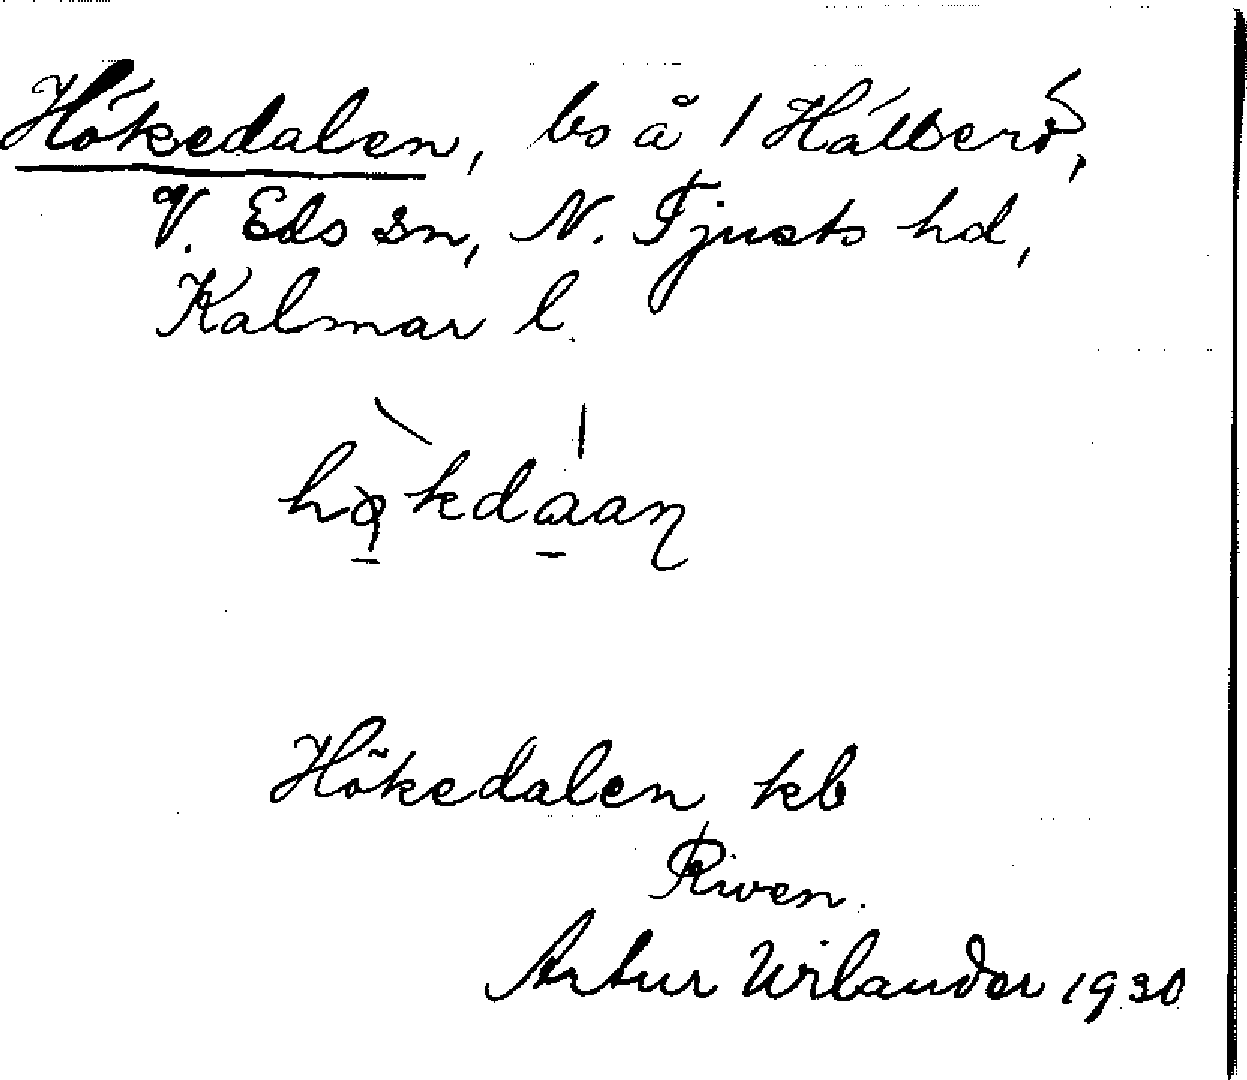 Hökedalen, bs å 1 Hålberö,
V. Eds sn, N. Tjusts hd,
Kalmar l.
Hökedalen kb
Riven.
Artur Wilander 1930